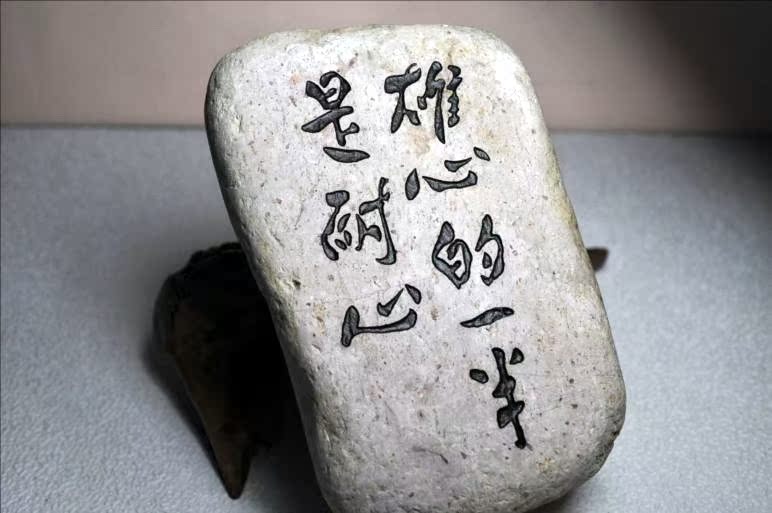 雄心的一半
是耐心